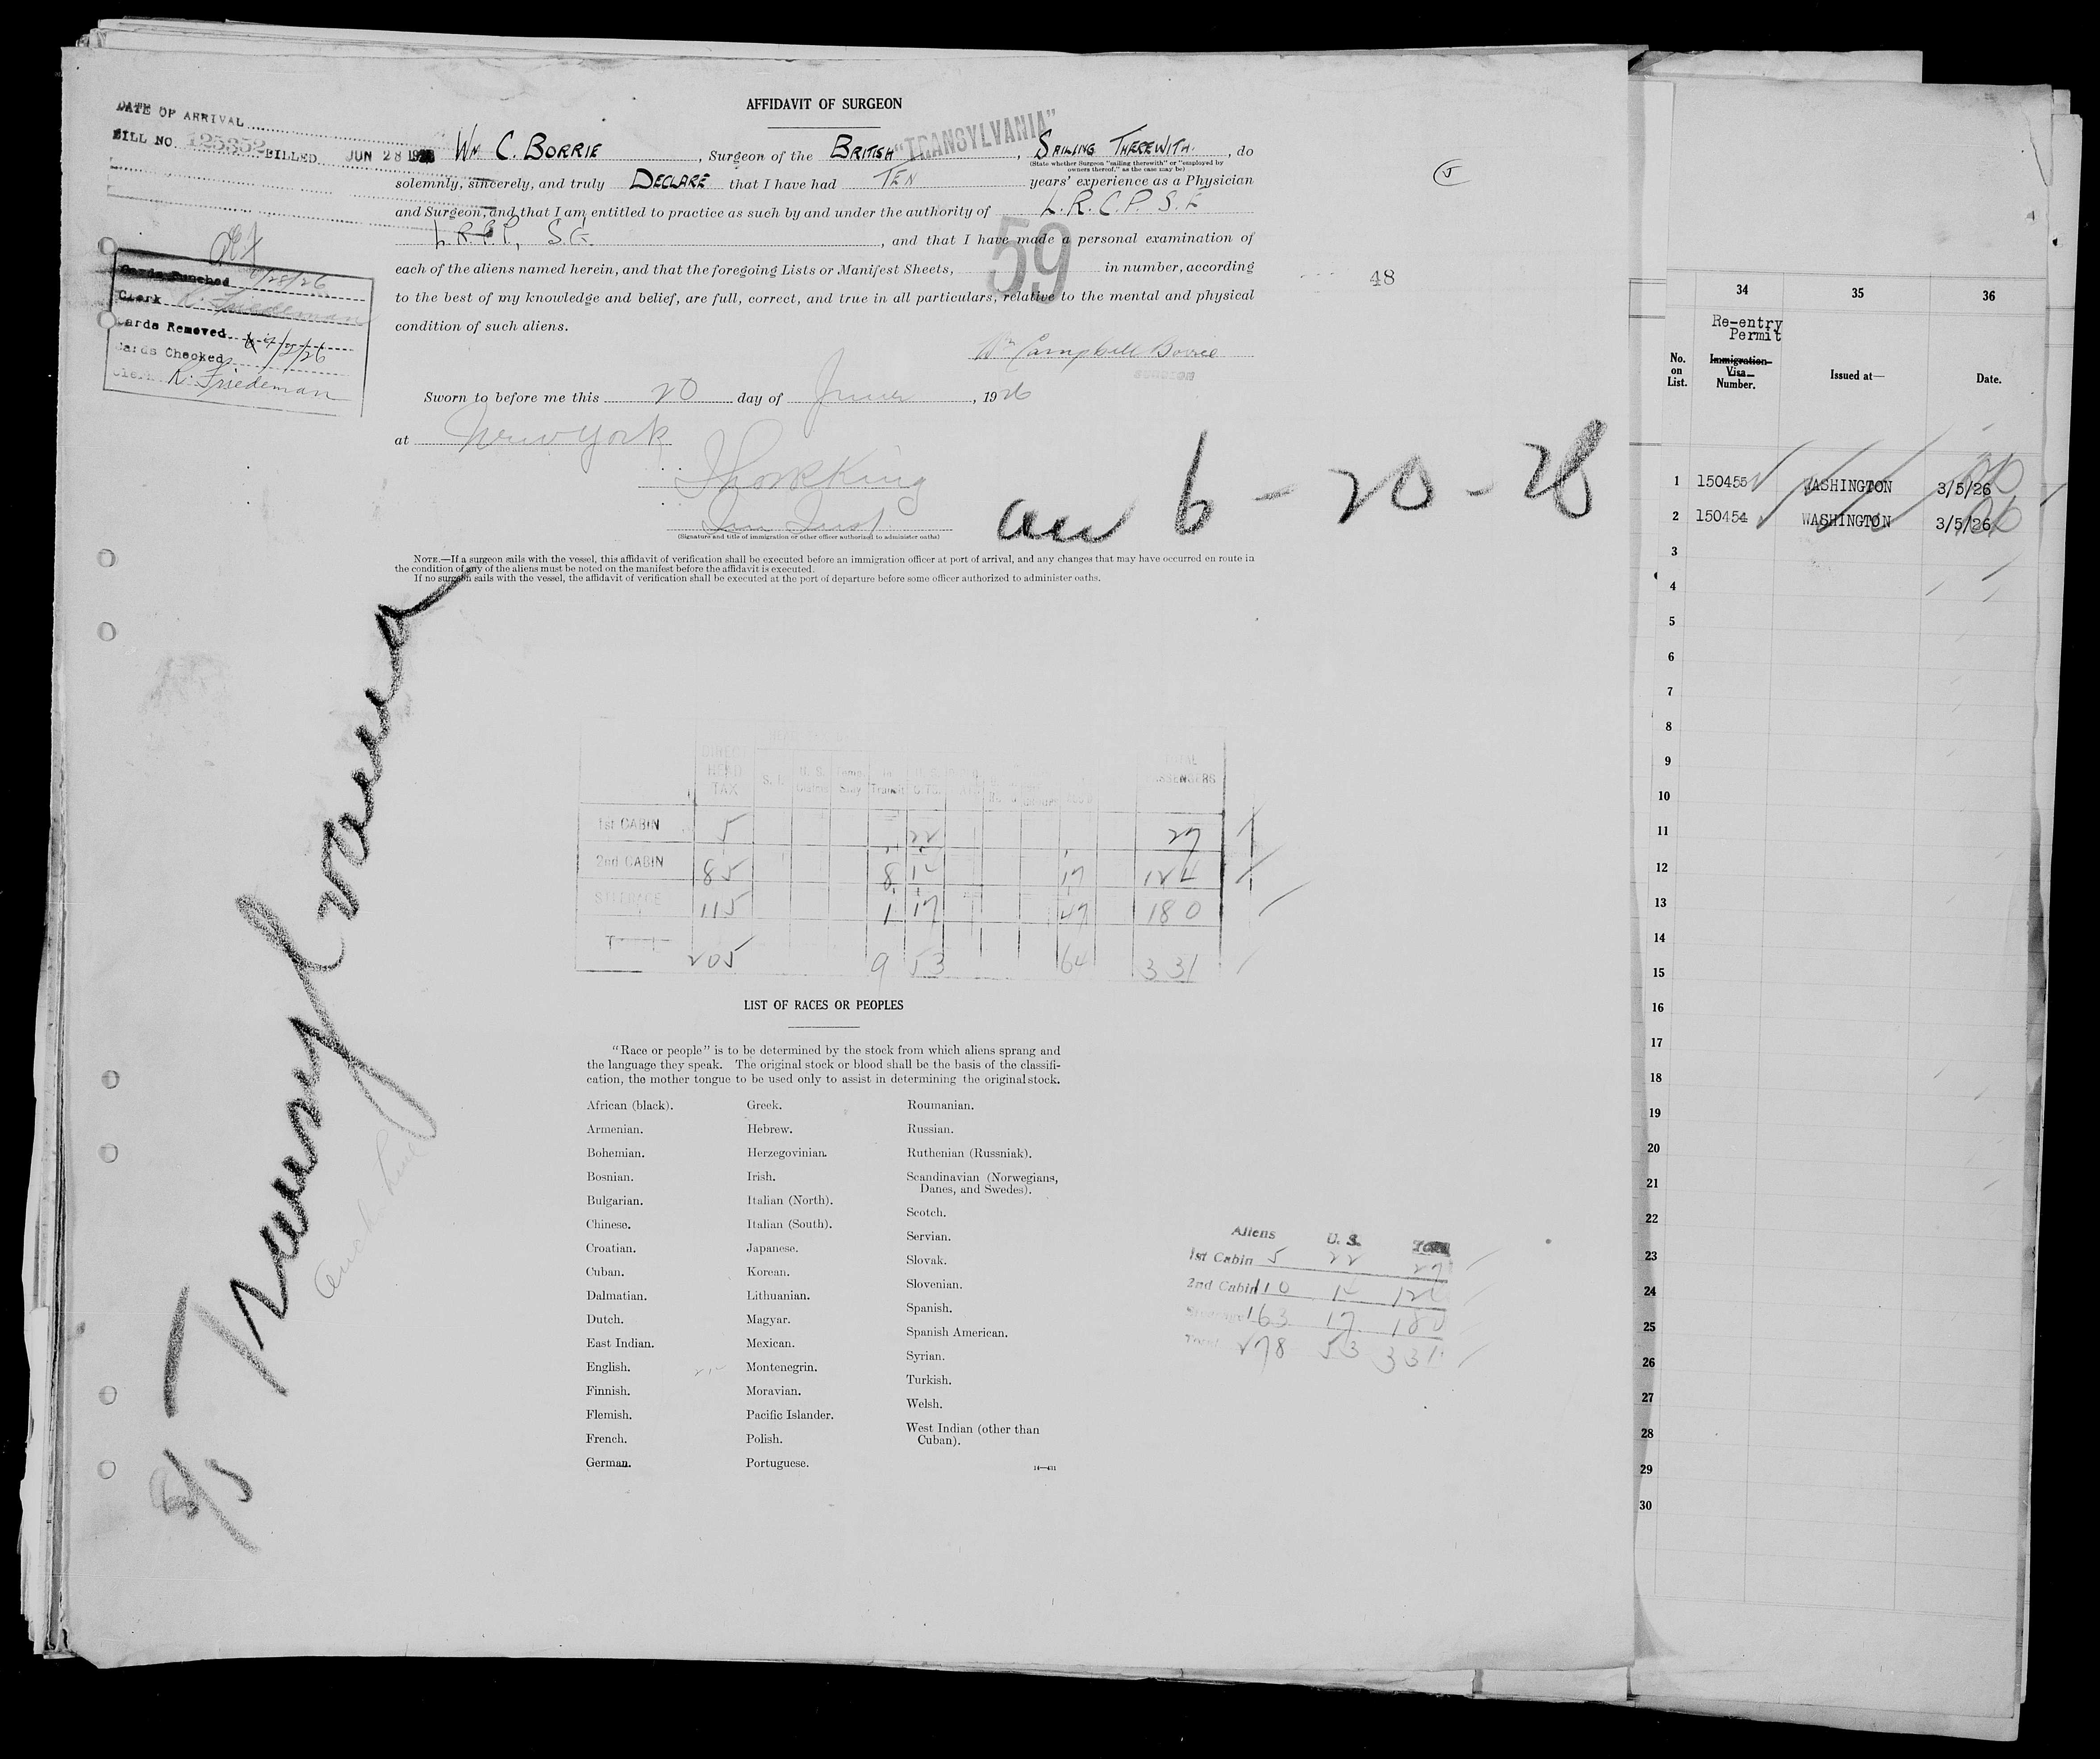 AFFIDAVIT OF SURGEON
DATE OF ARRIVAL
BILL NO. 125352 BILLED JUN 28 1926
Wm C. BORRIE, Surgeon of the BRITISH "TRANSYLVANIA", SAILING THEREWITH, do
(State whether Surgeon "sailing therewith" or "employed by
owners thereof," as the case may be)
solemnly, sincerely, and truly DECLARE that I have had TEN years' experience as a Physician
and Surgeon, and that I am entitled to practice as such by and under the authority of L.R.C.P.S.E
L.R.F.P., S.G., and that I have made a personal examination of
each of the aliens named herein, and that the foregoing Lists or Manifest Sheets, 59 in number, according
to the best of my knowledge and belief, are full, correct, and true in all particulars, relative to the mental and physical
condition of such aliens.
48
5
Wm Campbell Borrie
SURGEON
Cards Punched 6/28/26
Clerk R. Friedeman
Cards Removed
Cards Checked 6/29/26
Clerk R. Friedeman
Sworn to before me this 20 day of June, 1926
at New York
Imm Inst
(Signature and title of immigration or other officer authorized to administer oaths)
arr 6-20-26
NOTE.—If a surgeon sails with the vessel, this affidavit of verification shall be executed before an immigration officer at port of arrival, and any changes that may have occurred en route in
the condition of any of the aliens must be noted on the manifest before the affidavit is executed.
If no surgeon sails with the vessel, the affidavit of verification shall be executed at the port of departure before some officer authorized to administer oaths.
Transylvania
Anchor Line
DIRECT HEAD TAX U. S. Temp. Stay In Transit U.S. CTZ. TOTAL PASSENGERS
1st CABIN 5 22 27
2nd CABIN 85 8 14 17 124
STEERAGE 115 1 17 47 180
Total 205 9 53 64 331
LIST OF RACES OR PEOPLES
"Race or people" is to be determined by the stock from which aliens sprang and
the language they speak. The original stock or blood shall be the basis of the classifi-
cation, the mother tongue to be used only to assist in determining the original stock.
African (black).
Armenian.
Bohemian.
Bosnian.
Bulgarian.
Chinese.
Croatian.
Cuban.
Dalmatian.
Dutch.
East Indian.
English.
Finnish.
Flemish.
French.
German.
Greek.
Hebrew.
Herzegovinian.
Irish.
Italian (North).
Italian (South).
Japanese.
Korean.
Lithuanian.
Magyar.
Mexican.
Montenegrin.
Moravian.
Pacific Islander.
Polish.
Portuguese.
Roumanian.
Russian.
Ruthenian (Russniak).
Scandinavian (Norwegians,
Danes, and Swedes).
Scotch.
Servian.
Slovak.
Slovenian.
Spanish.
Spanish American.
Syrian.
Turkish.
Welsh.
West Indian (other than
Cuban).
14—431
Aliens U. S. Total
1st Cabin 5 22 27
2nd Cabin 110 14 124
Steerage 163 17 180
Total 278 53 331
34 35 36
No.
on
List.
Re-entry
Permit
Immigration
Visa
Number.
Issued at—
Date.
1 150455 WASHINGTON 3/5/26
2 150454 WASHINGTON 3/5/26
3
4
5
6
7
8
9
10
11
12
13
14
15
16
17
18
19
20
21
22
23
24
25
26
27
28
29
30